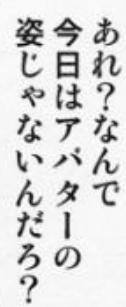 あれ？なんで
今日はアバターの
姿じゃないんだろ？